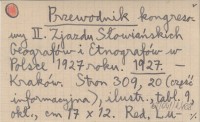 Przewodnik kongreso-
wy II. Zjazdu Słowiańskich
Geografów i Etnografów w
Polsce 1927 roku. 1927. –
Kraków. Stron 309, 20 (część
informacyjna), ilustr., tabl. 9,
okł., cm 17 x 12. Red. L.u-